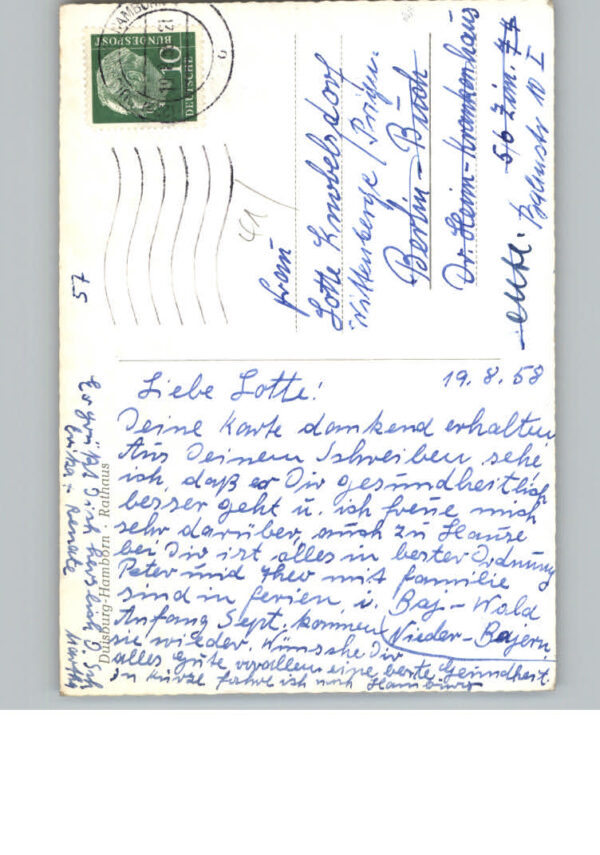 Liebe Lotte!
19.8.58
Deine Karte dankend erhalten
Aus Deinem Schreiben sehe
ich, daß es Dir gesundheitlich
besser geht u. ich freue mich
sehr darüber, auch zu Hause
bei Dir ist alles in bester Ordnung
Peter und Theo mit Familie
sind in Ferien, i. Baj-Wald
Anfang Sept. kommen (Nieder-Bajern.
sie wieder. Wünsche Dir
alles Gute vorallem eine beste Gesundheit.
In Kürze fahre ich nach Hamburg
Es grüßt Dich herzlich D. Sch
Martha
Renate
Duisburg-Hamborn · Rathaus
Frau
Lotte Knobelsdorf
Wittenberge/Prign.
Berlin-Buch
Dr. Heim-Krankenhaus
DEUTSCHE
BUNDESPOST
10
HAMBORN
57